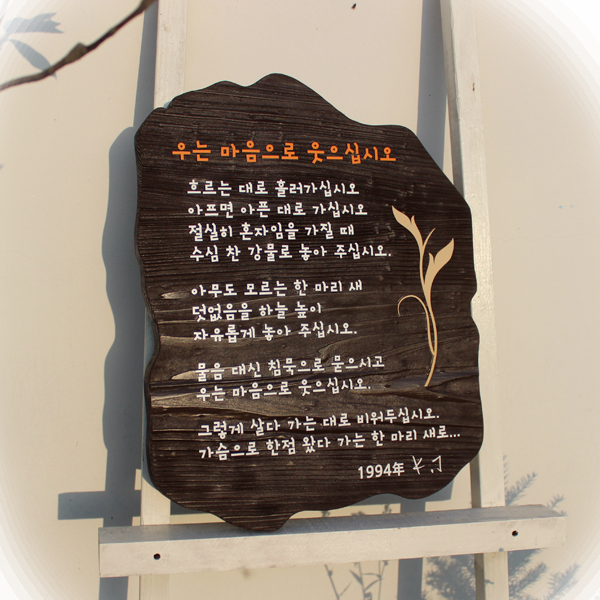 우는 마음으로 웃으십시오
흐르는 대로 흘러가십시오
아프면 아픈 대로 가십시오
절실히 혼자임을 가질 때
수심 찬 강물로 놓아 주십시오.
아무도 모르는 한 마리 새
덧없음을 하늘 높이
자유롭게 놓아 주십시오.
물음 대신 침묵으로 묻으시고
우는 마음으로 웃으십시오.
그렇게 살다 가는 대로 비워두십시오.
가슴으로 한점 왔다 가는 한 마리 새로...
1994年